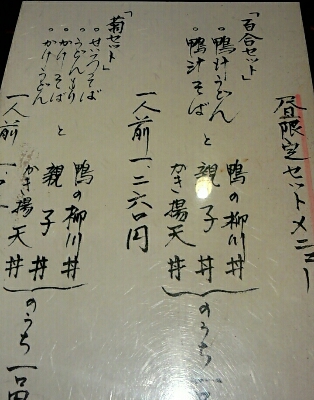 昼限定セットメニュー
「百合セット」
。鴨汁うどん
。鴨汁そば
と
鴨の柳川丼
親子丼
かき揚天丼
のうち
一人前一、二六〇円
「菊セット」
。せいろそば
。うどんもり
。かけそば
。かけうどん
と
鴨の柳川丼
親子丼
かき揚天丼
のうち一口
一人前